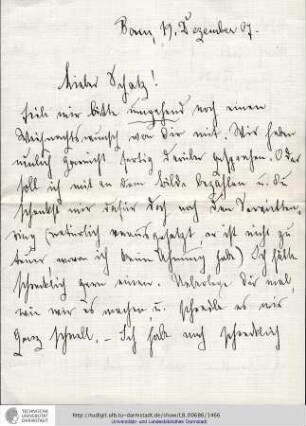 Bonn, 19. Dezember 07.
Lieber Schatz!
Teile mir bitte umgehend noch einen
Weihnachtswunsch von Dir mit. Wir haben
neulich garnicht fertig darüber gesprochen. Oder
soll ich mit an dem Bilde bezahlen u. du
schenkst mir dafür doch noch den Servietten-
ring (natürlich vorausgesetzt er ist nicht zu
teuer wovon ich keine Ahnung habe) Ich hätte
schrecklich gern einen. Ueberlege dir mal,
wie wir es machen u. schreibe es mir
ganz schnell. – Ich habe noch schrecklich
TECHNISCHE
UNIVERSITÄT
DARMSTADT
http://tudigit.ulb.tu-darmstadt.de/show/LB_00686/1466
Universitäts- und Landesbibliothek Darmstadt